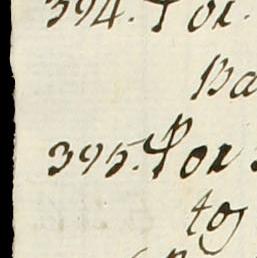 394. For
Ba
395. For
to